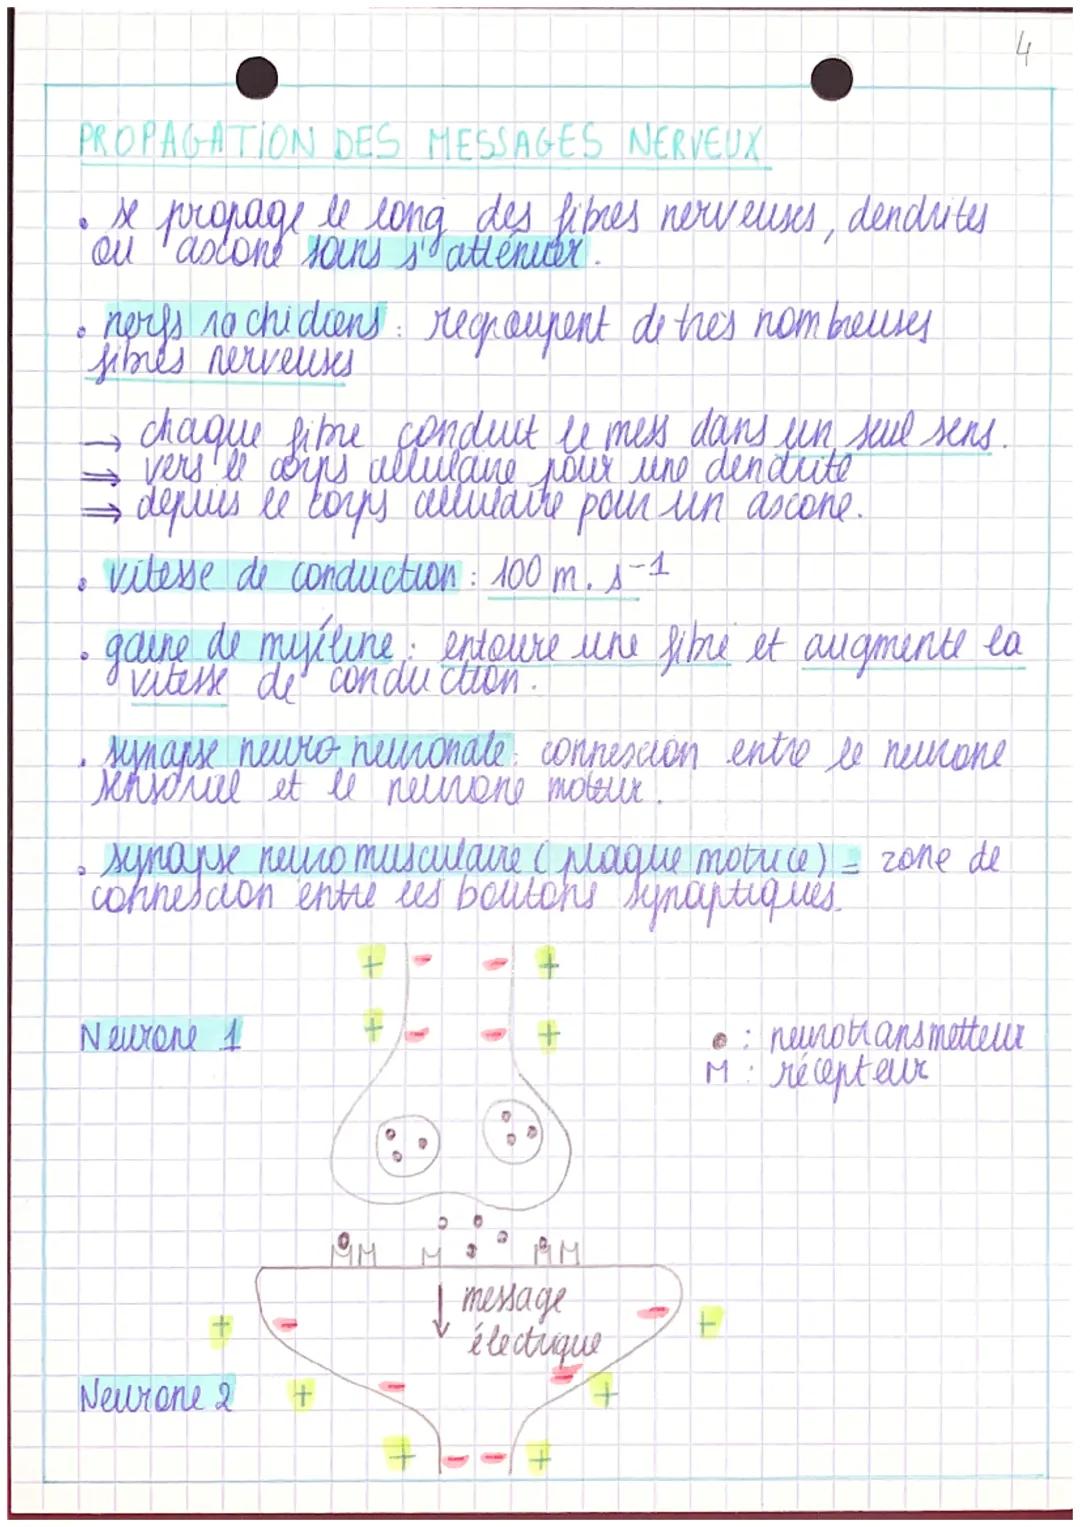 4
PROPAGATION DES MESSAGES NERVEUX
• se propage le long des fibres nerveuses, dendrites
ou axone sans s'atténuer.
• nerfs rachidiens : regroupent de très nombreuses
fibres nerveuses
→ chaque fibre conduit le mess dans un seul sens.
⇒ vers le corps cellulaire pour une dendrite
⇒ depuis le corps cellulaire pour un axone.
• vitesse de conduction : 100 m. s-1
• gaine de myéline : entoure une fibre et augmente la
vitesse de conduction.
• synapse neuro neuronale : connexion entre le neurone
sensoriel et le neurone moteur.
• synapse neuromusculaire (plaque motrice) = zone de
connexion entre les boutons synaptiques.
+ - - +
Neurone 1 + - - +
• : neurotransmetteur
M : récepteur
M M M M M
↓ message
électrique
+ - - +
Neurone 2 + - - +
+ - - +